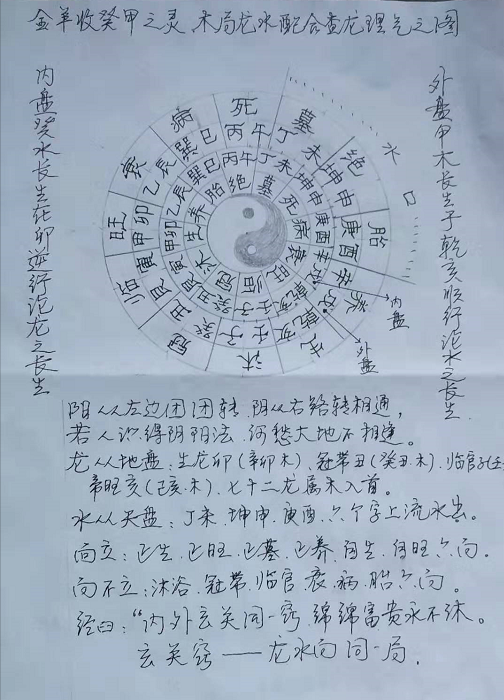 金羊收癸甲之灵 木局龙水配合查龙理气之图
内盘癸水长生在卯逆行论龙之长生
外盘甲木长生于乾亥顺行论水之长生
水口
病 死 墓 绝 胎 养 生 沐 冠 临 旺 衰
巽巳 丙午 丁未 坤申 庚酉 辛戌 乾亥 壬子 癸丑 艮寅 甲卯 乙辰
巽巳 丙午 丁未 坤申 庚酉 辛戌 乾亥 壬子 癸丑 艮寅 甲卯 乙辰
胎 绝 墓 死 病 衰 旺 临 冠 沐 生 养
内盘
外盘
阳从左边团团转,阴从右路转相通,
若人识得阴阳法,何愁大地不相逢。
龙从地盘:生龙卯(辛卯木)、冠带丑(癸丑木)、临官子(壬
帝旺亥(己亥木)、七十二龙属木入首。
水从天盘:丁未、坤申、庚酉、六个字上流水去。
向立:正生、正旺、正墓、正养、自生、自旺六向。
向不立:沐浴、冠带、临官、衰、病、胎六向。
经曰:“内外玄关同一窍,绵绵富贵永不休。
玄关窍——龙水向同一局.